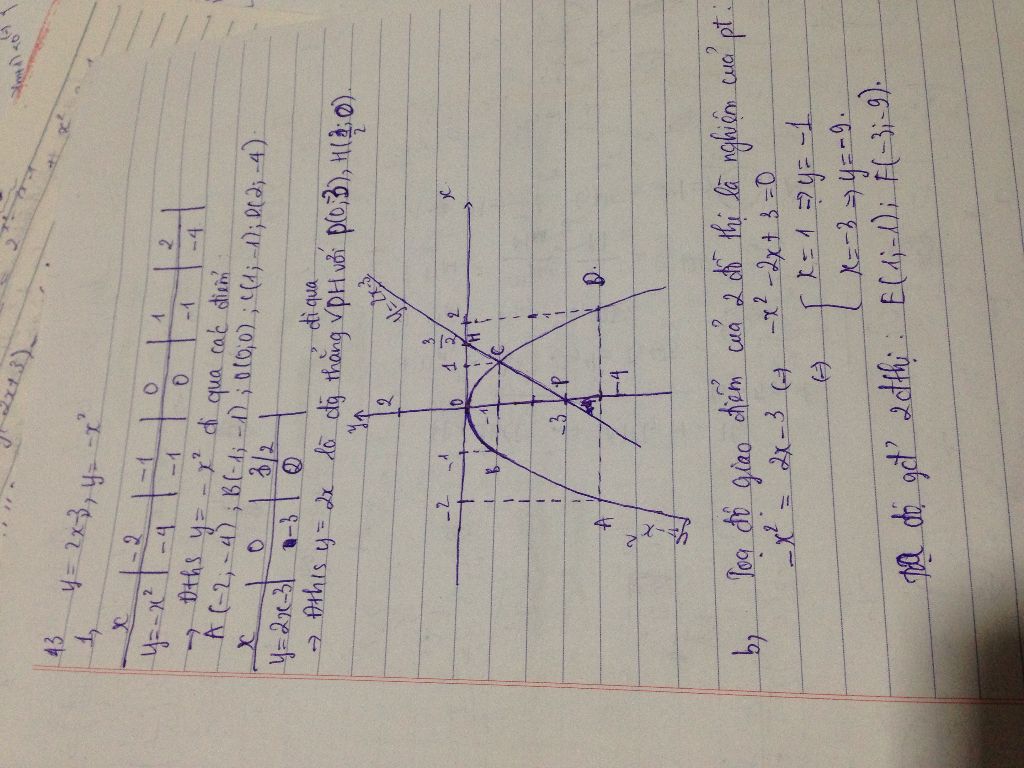 43
1, y = 2x-3, y = -x²
x | -2 | -1 | 0 | 1 | 2
y=-x² | -4 | -1 | 0 | -1 | -4
→ Đths y = -x² đi qua các điểm:
A(-2,-4); B(-1;-1); O(0;0); C(1;-1); D(2;-4)
x | 0 | 3/2
y=2x-3 | -3 | 0
→ Đths y = 2x là đg thẳng đi qua
PH với P(0;-3), H(3/2;0).
y
2
-2 -1 0 1 3/2 2 x
H
y=2x-3
B -1 C
-3 P
A -4 D
y=-x²
b, Toạ độ giao điểm của 2 đồ thị là nghiệm của pt:
-x² = 2x-3 (=) -x² -2x+3=0
(=) [ x = 1 => y = -1
x=-3 => y=-9.
độ gđ 2 đthị: E(1;-1); F(-3;-9).